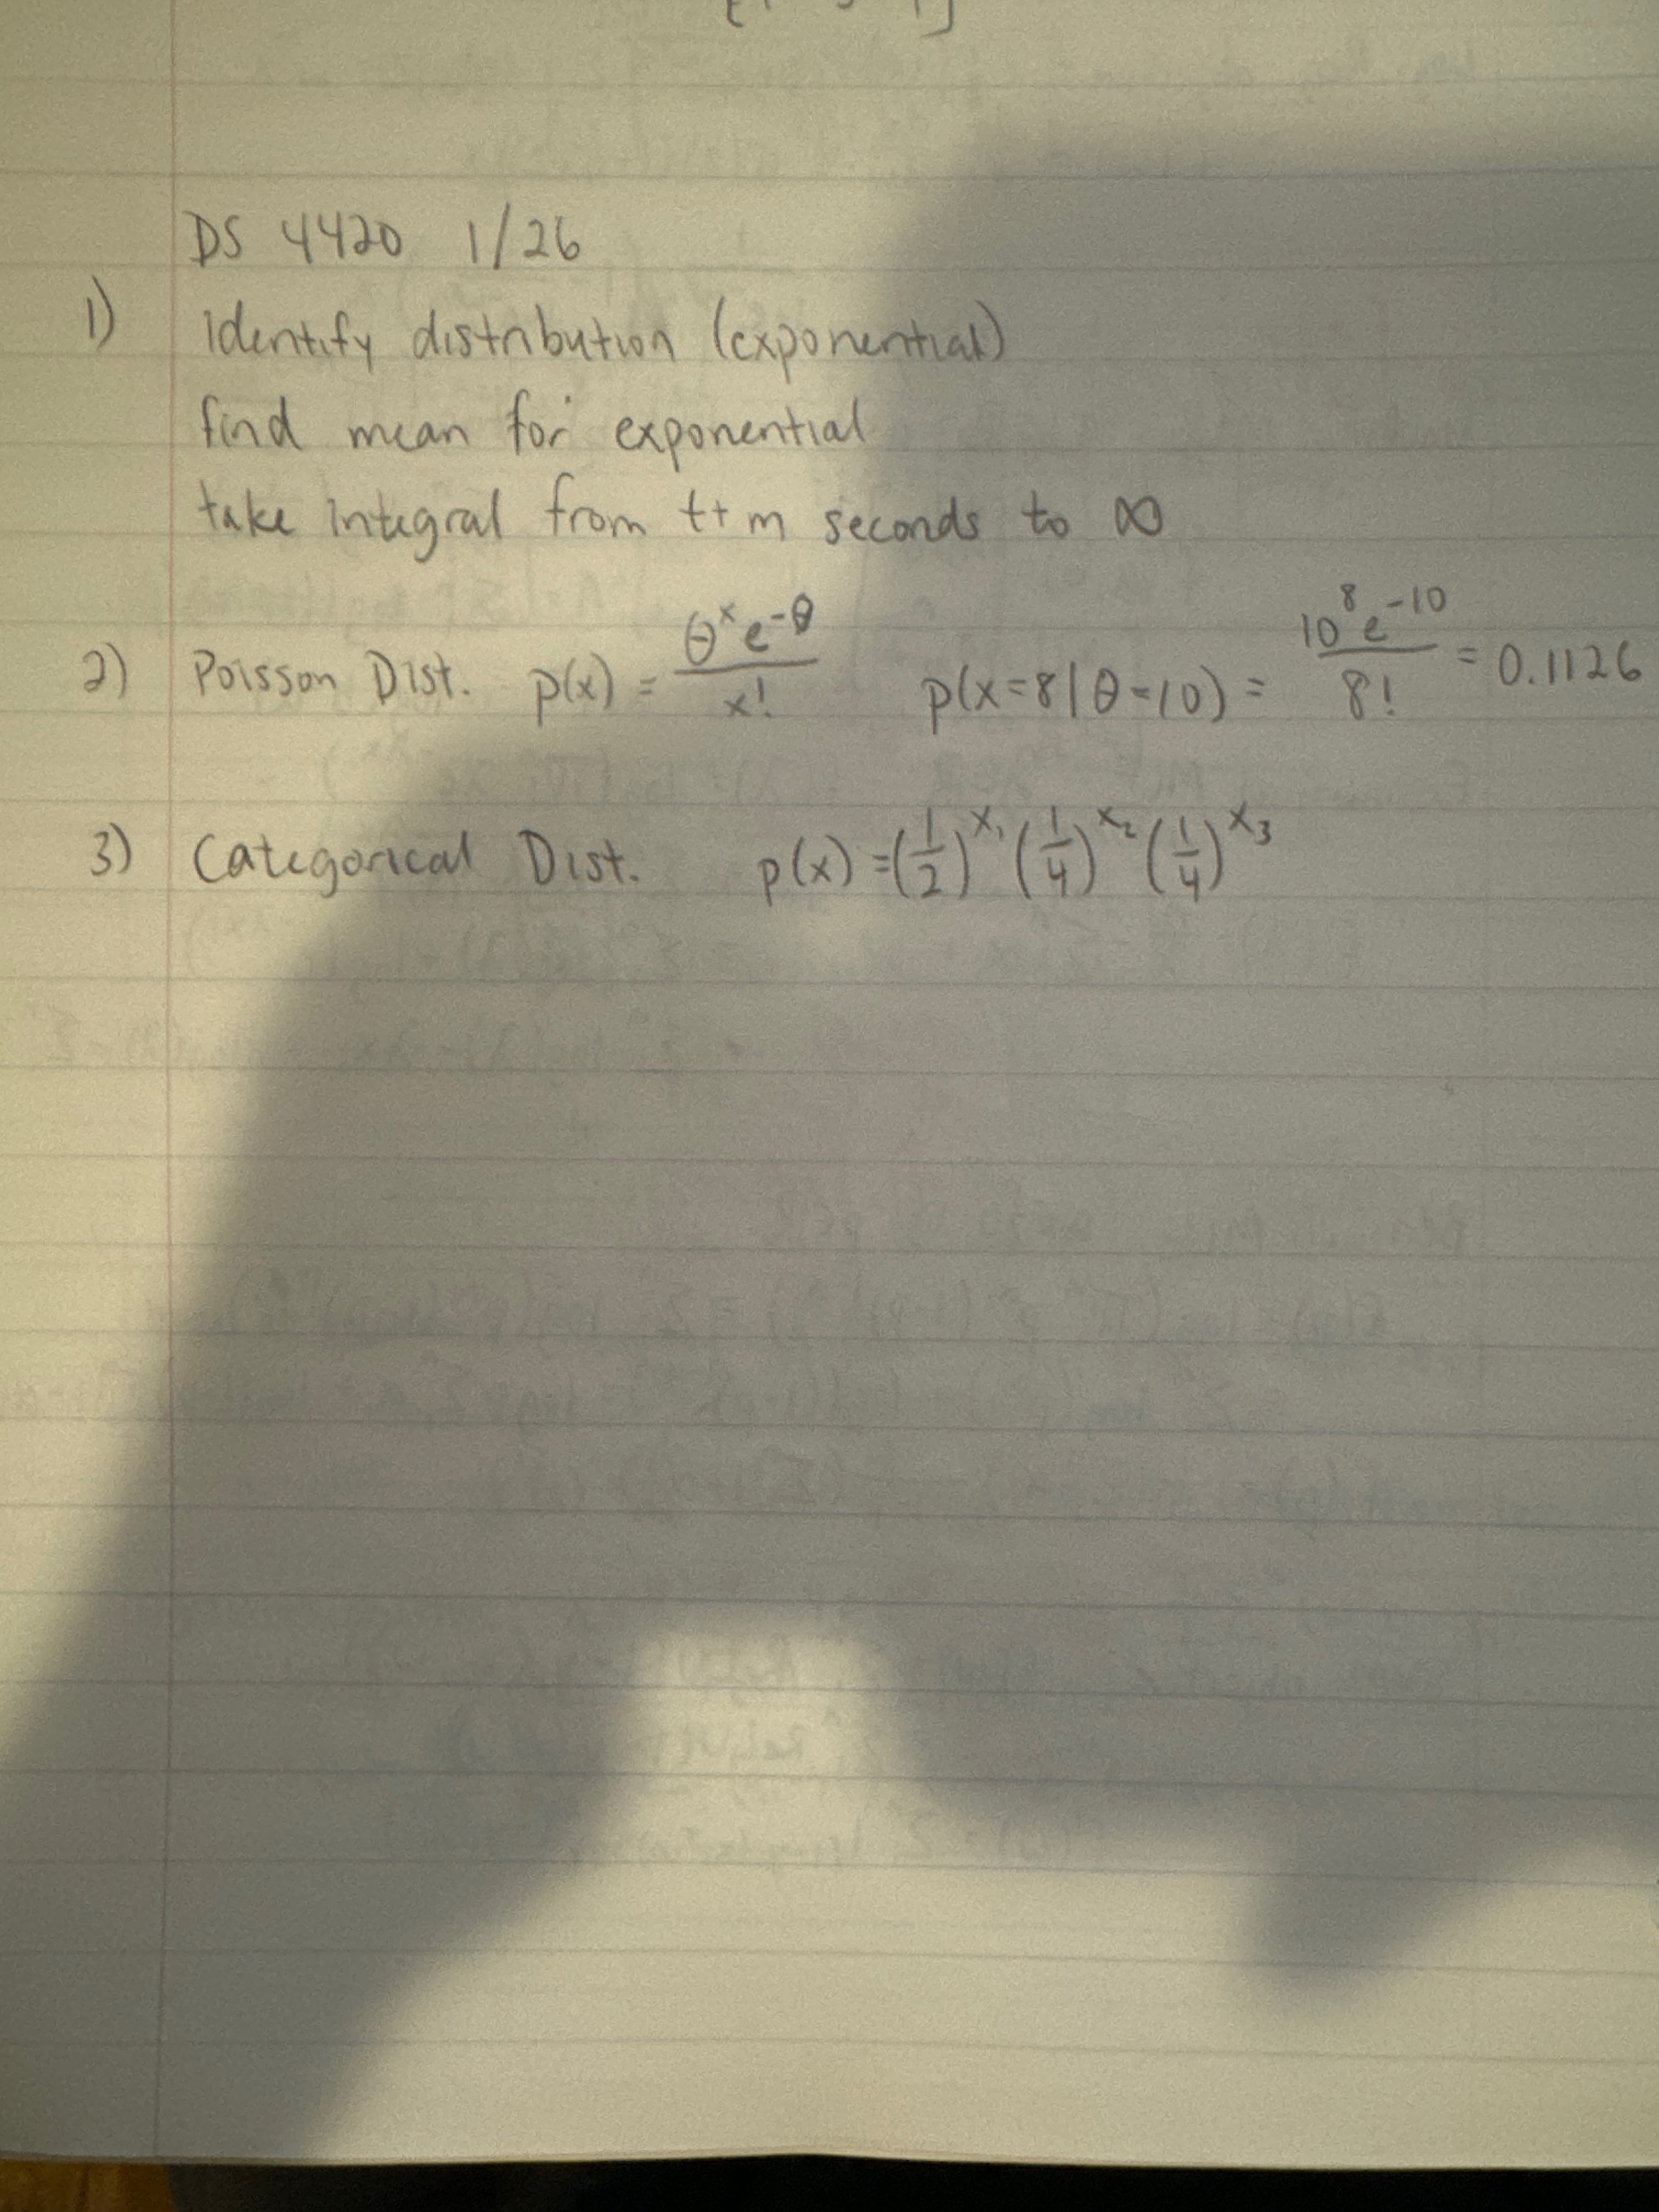 DS 4420 1/26
1) Identify distribution (exponential)
find mean for exponential
take integral from t+m seconds to ∞
2) Poisson Dist. p(x) = θ^x e^-θ / x! p(x=8|θ=10) = 10^8 e^-10 / 8! = 0.1126
3) Categorical Dist. p(x) = (1/2)^x₁ (1/4)^x₂ (1/4)^x₃